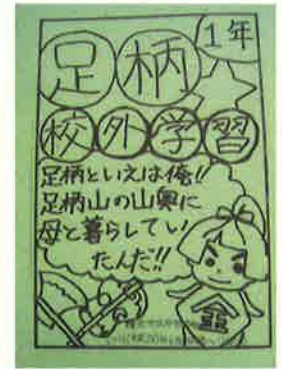 1年
足柄
校外学習
足柄といえば俺!!
足柄山の山奥に
母と暮らしてい
たんだ!!
金